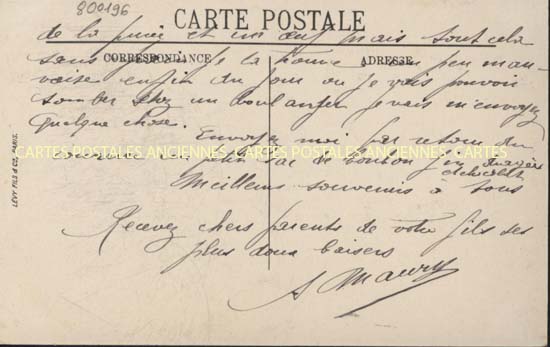 800196
CARTE POSTALE
de la purée et un œuf mais tout cela
sans je la trouve un peu mau-
CORRESPONDANCE ADRESSE
vaise enfin du jour où je vais pouvoir
tomber chez un boulanger je vais m'envoyer
quelque chose. Envoyez moi par retour du
CARTES POSTALES ANCIENNES CARTES POSTALES ANCIENNES CARTES
courrier un petit sac de bonbon
chocolat
Meilleurs souvenirs à tous
Recevez chers parents de votre fils ses
plus doux baisers
A Maury
LEVY FILS & CO. PARIS.